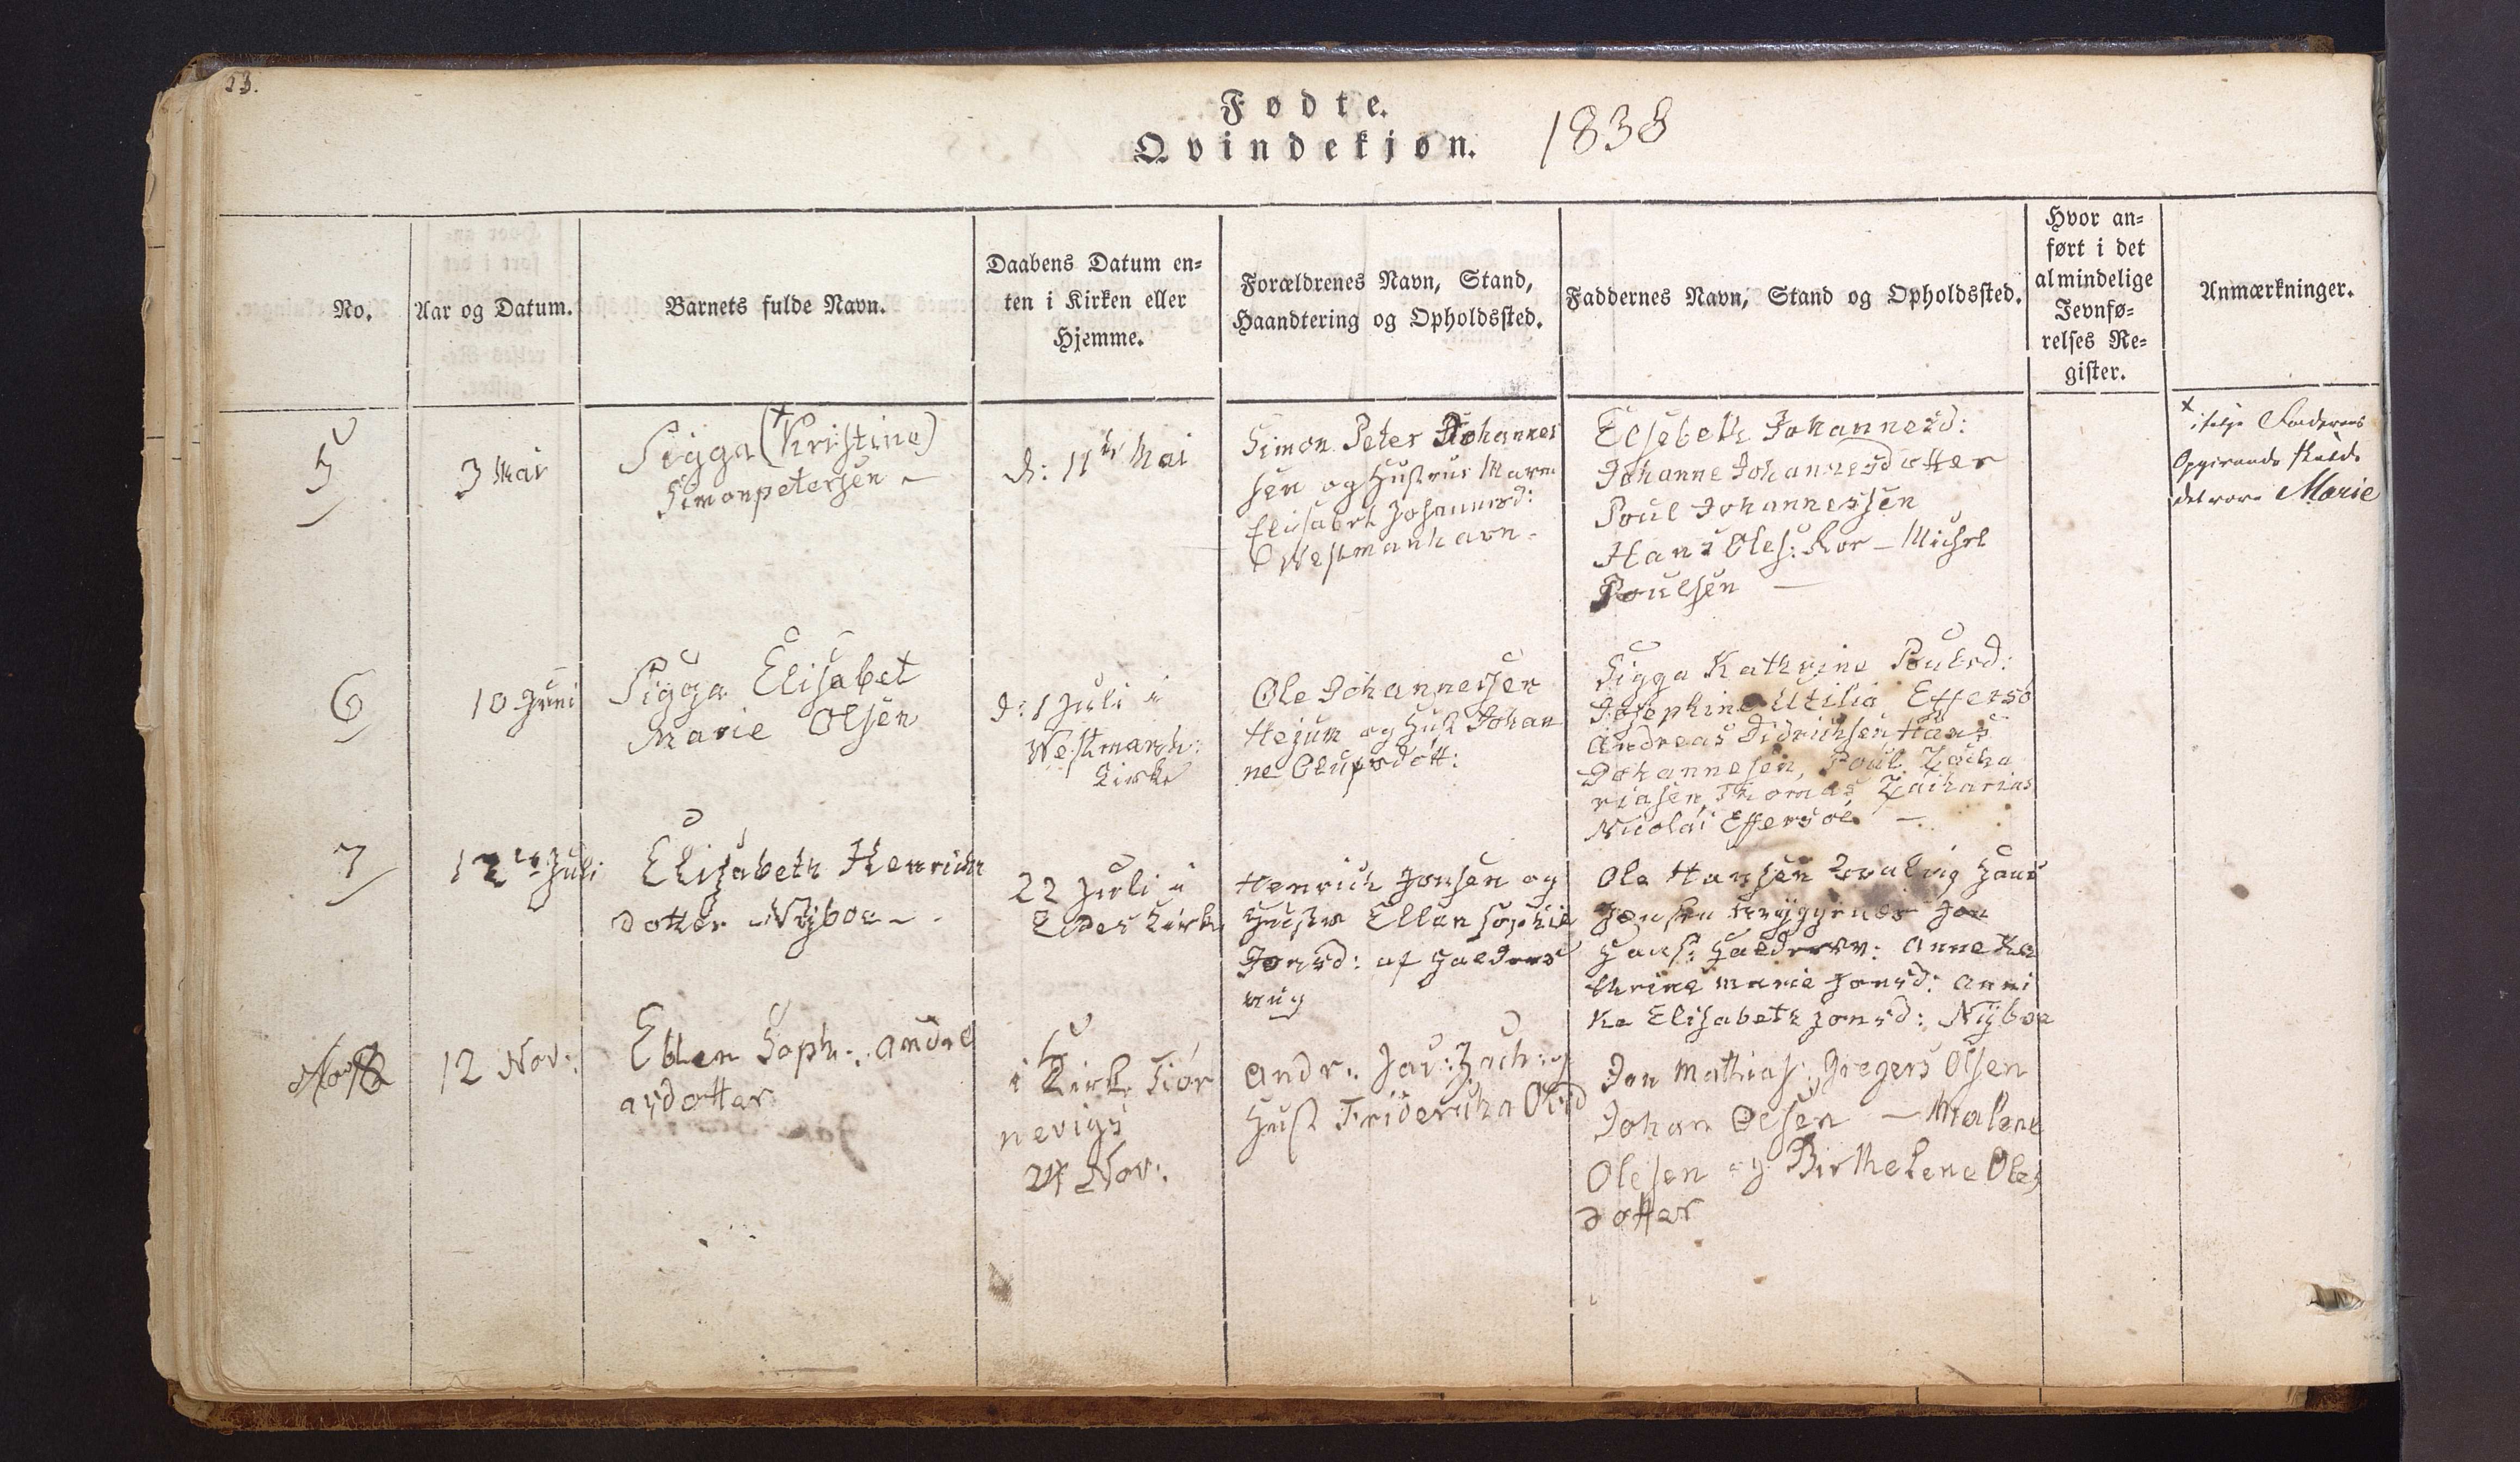 23.
Fødte.
Qvindekjøn. 1838
No.
Aar og Datum.
Barnets fulde Navn.
Daabens Datum en-
ten i Kirken eller
Hjemme.
Forældrenes Navn, Stand,
Haandtering og Opholdssted.
Faddernes Navn, Stand og Opholdssted.
Hvor an-
ført i det
almindelige
Jevnfø-
relses Re-
gister.
Anmærkninger.
5
3 Mai
Sigga (+Kristine)
Simonpetersen -
d: 11te Mai
Simon Peter Johannes
sen og Hustrue Maren
Elisabet Johannesd:
Westmanhavn.
Elsebeth Johannesd:
Johanne Johannesdotter
Poul Johannessen
Hans Oles: - Michel
Poulsen -
x ifølge Faderens
Opgivende skulde
det være Marie
6
10 Juni
Sigga Elisabet
Marie Olsen
d: 1 Juli i
Westmanh:
Kirke
Ole Johannessen
Hejum og Hust Johan
ne Olufsdott:
Sigga Kathrine Poulsd:
Josephine Utilia Effersö
Andreas Didrichsen Hans
Johannesen, Poul Zacha
riasen, Thomas Zacharias
Nicolai Effersöe -
7
12te Juli
Elisabeth Henrich
dotter Nÿboe -
22 Juli i
Eides Kirke
Henrich Jonsen og
Hustru Ellen Sophie
Jonsd: af Halders
vug
Ole Hansen Hans
Jensen Jon
Hans: Haldersv: Anne Ka
thrine Marie Jonsd: Anni
ka Elisabeth Jonsd: Nÿboe
No 8
12 Nov:
Ellen Soph: Andre
asdotter
i Kirk Tiör
nevigs
24 Nov:
Andr: Jac: Zach: og
Hust Fridericha Olsd
Jon Mathias: Gregers Olsen
Johan Olsen - Malene
Olesen og Birthe Lene Oles
dotter